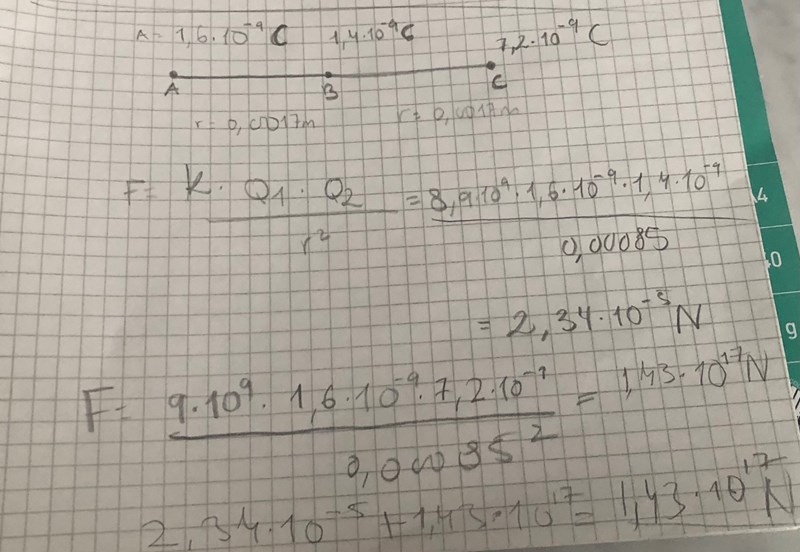 A = 1,6·10⁻⁹ C 1,4·10⁻⁹ C 7,2·10⁻⁹ C
A B C
r = 0,0017m r = 0,0017m
F = K · Q1 · Q2 / r² = 8,9·10⁹ · 1,6·10⁻⁹ · 1,4·10⁻⁹ / 0,00085
= 2,34·10⁻⁵ N
F = 9·10⁹ · 1,6·10⁻⁹ · 7,2·10⁻⁹ / 0,00085² = 1,43·10¹⁷ N
2,34·10⁻⁵ + 1,43·10¹⁷ = 1,43·10¹⁷ N
4
0
9